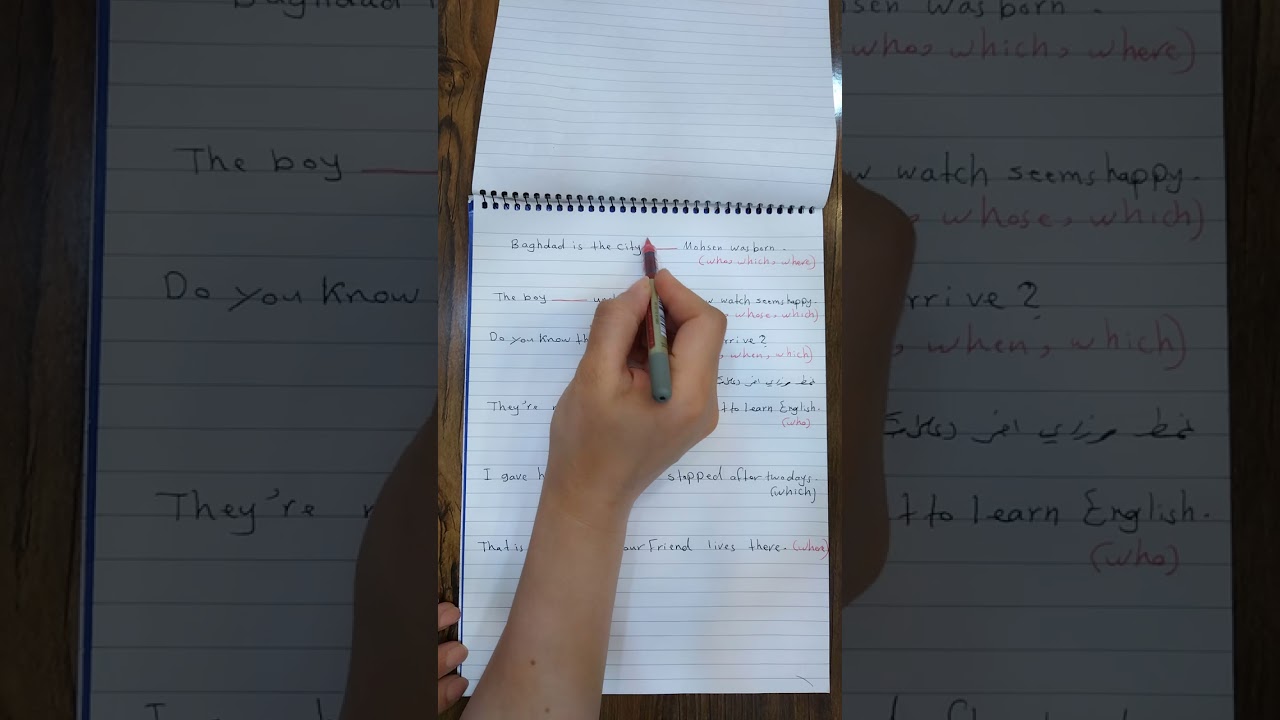 Baghdad is the city ____ Mohsen was born.
(who, which, where)
The boy ____ watch seems happy.
whose, which)
Do you know th rrive?
, when, which)
They're t to learn English.
(who)
I gave h stopped after two days.
(which)
That is our Friend lives there. (where)